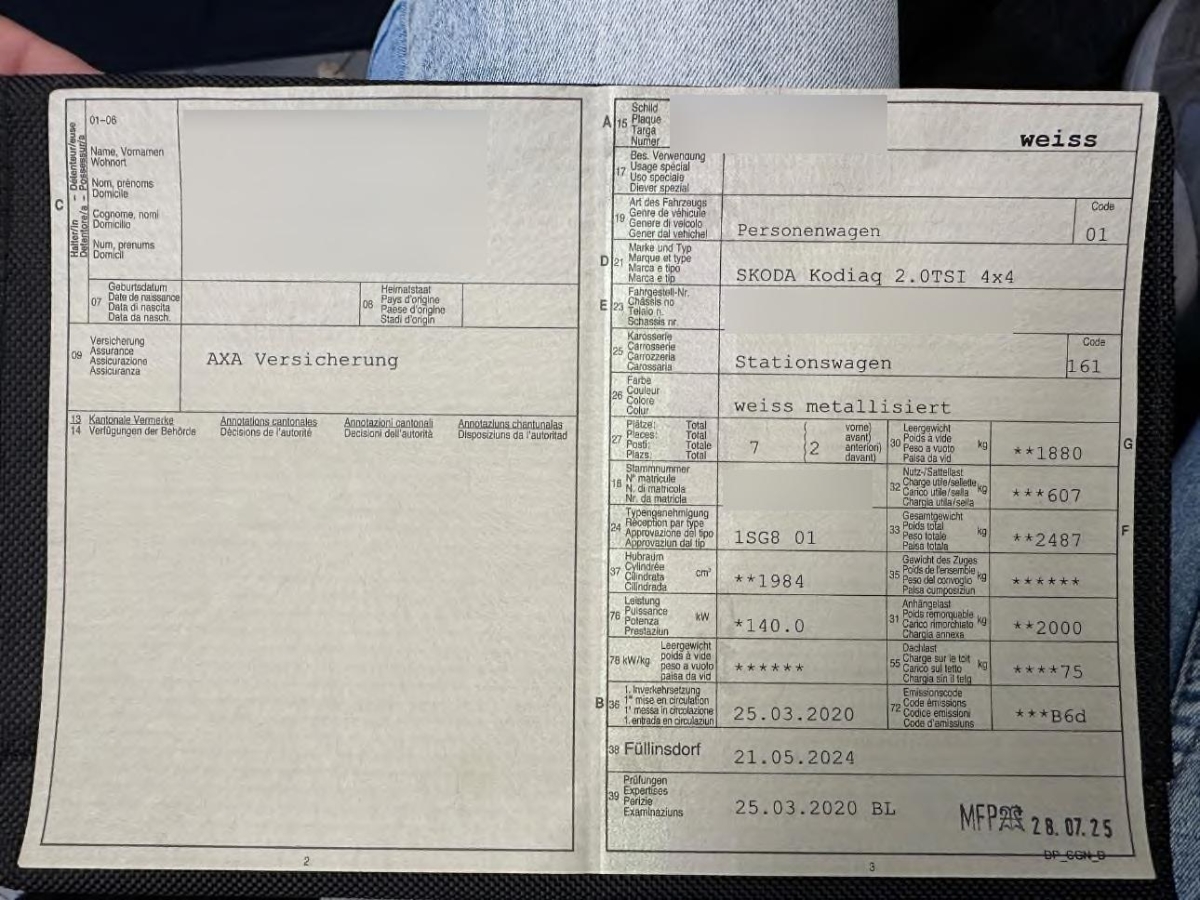 Halter/in – Détenteur/euse
Detentore/a – Possessur/a
C
01-06
Name, Vornamen
Wohnort
Nom, prénoms
Domicile
Cognome, nomi
Domicilio
Num, prenums
Domicil
07
Geburtsdatum
Date de naissance
Data di nascita
Data da nasch.
08
Heimatstaat
Pays d'origine
Paese d'origine
Stadi d'origin
09
Versicherung
Assurance
Assicurazione
Assicuranza
AXA Versicherung
13 Kantonale Vermerke Annotations cantonales Annotazioni cantonali Annotaziuns chantunalas
14 Verfügungen der Behörde Décisions de l'autorité Decisioni dell'autorità Disposiziuns da l'autoritad
2
A 15
Schild
Plaque
Targa
Numer
weiss
17
Bes. Verwendung
Usage spécial
Uso speciale
Diever spezial
19
Art des Fahrzeugs
Genre de véhicule
Genere di veicolo
Gener dal vehichel
Personenwagen
Code
01
D 21
Marke und Typ
Marque et type
Marca e tipo
Marca e tip
SKODA Kodiaq 2.0TSI 4x4
E 23
Fahrgestell-Nr.
Châssis no
Telaio n.
Schassis nr.
25
Karosserie
Carrosserie
Carrozzeria
Carossaria
Stationswagen
Code
161
26
Farbe
Couleur
Colore
Colur
weiss metallisiert
27
Plätze: Total
Places: Total
Posti: Totale
Plazs: Total
7
2
vorne)
avant)
anteriori)
davant)
30
Leergewicht
Poids à vide
Peso a vuoto
Paisa da vid
kg
**1880
G
18
Stammnummer
N° matricule
N. di matricola
Nr. da matricla
32
Nutz-/Sattellast
Charge utile/sellette
Carico utile/sella
Chargia utila/sella
kg
***607
24
Typengenehmigung
Réception par type
Approvazione del tipo
Approvaziun dal tip
1SG8 01
33
Gesamtgewicht
Poids total
Peso totale
Paisa totala
kg
**2487
F
37
Hubraum
Cylindrée
Cilindrata
Cilindrada
cm³
**1984
35
Gewicht des Zuges
Poids de l'ensemble
Peso del convoglio
Paisa cumposiziun
kg
******
76
Leistung
Puissance
Potenza
Prestaziun
kW
*140.0
31
Anhängelast
Poids remorquable
Carico rimorchiato
Chargia annexa
kg
**2000
78 kW/kg
Leergewicht
poids à vide
peso a vuoto
paisa da vid
******
55
Dachlast
Charge sur le toit
Carico sul tetto
Chargia sin il tetg
kg
****75
B 36
1. Inverkehrsetzung
1re mise en circulation
1a messa in circolazione
1. entrada en circulaziun
25.03.2020
72
Emissionscode
Code émissions
Codice emissioni
Code d'emissiuns
***B6d
38 Füllinsdorf
21.05.2024
39
Prüfungen
Expertises
Perizie
Examinaziuns
25.03.2020 BL
MFP 28.07.25
3